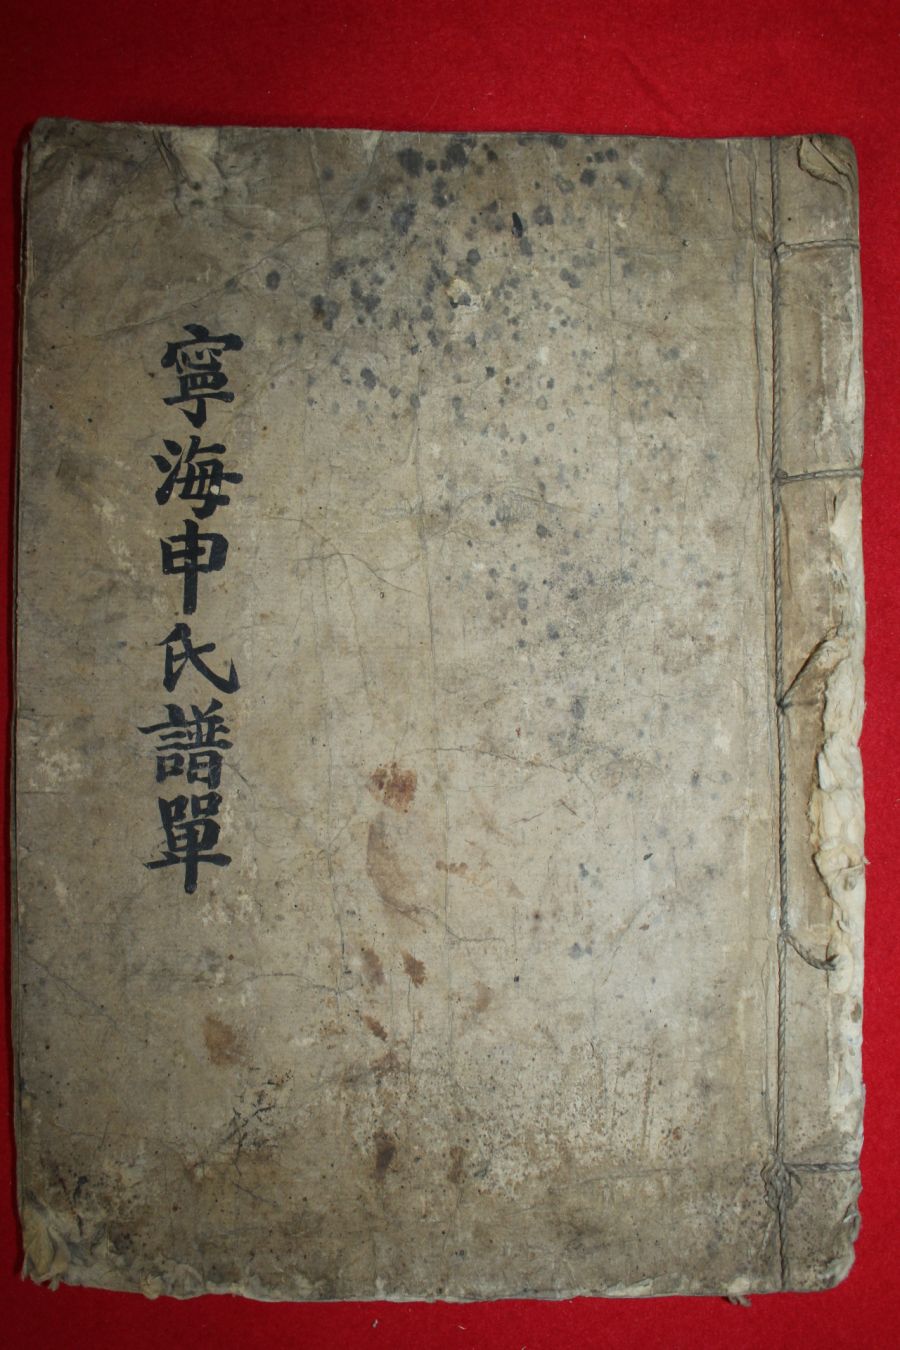 寧海申氏譜單